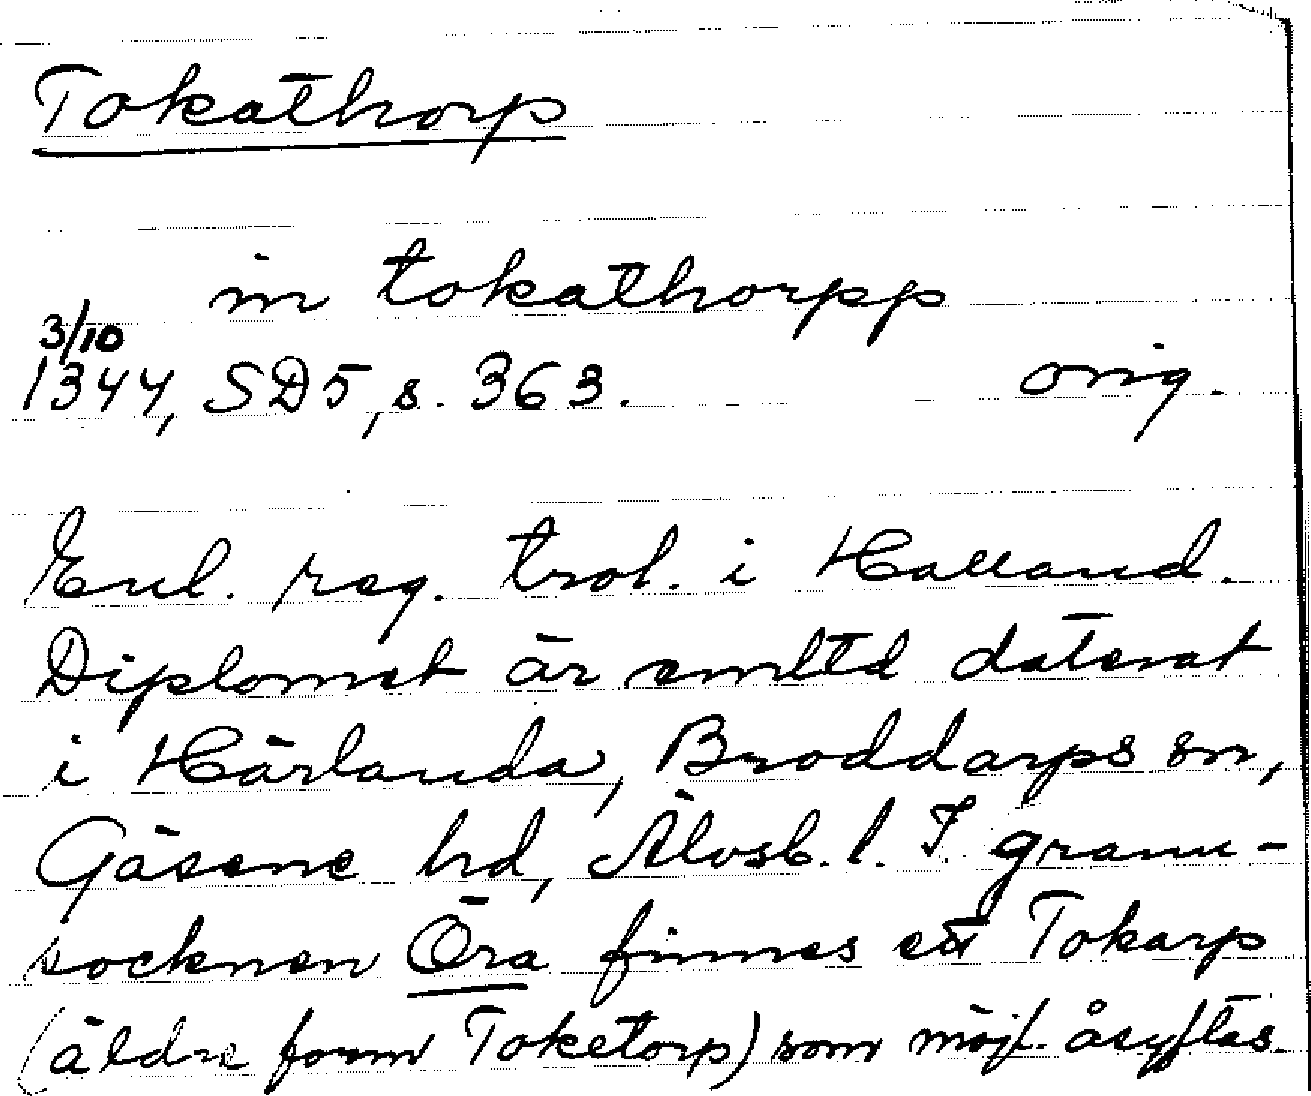 Tokathorp
in tokathorpp
3/10
1344, SD5, s. 363. orig.
Enl. reg. trol. i Halland.
Diplomet är emltd daterat
i Härlanda, Broddarps sn,
Gäsene hd, Älvsb. l. I grann-
socknen Öra finnes ett Tokarp
(äldre form Toketorp) som möjl. åsyftas.